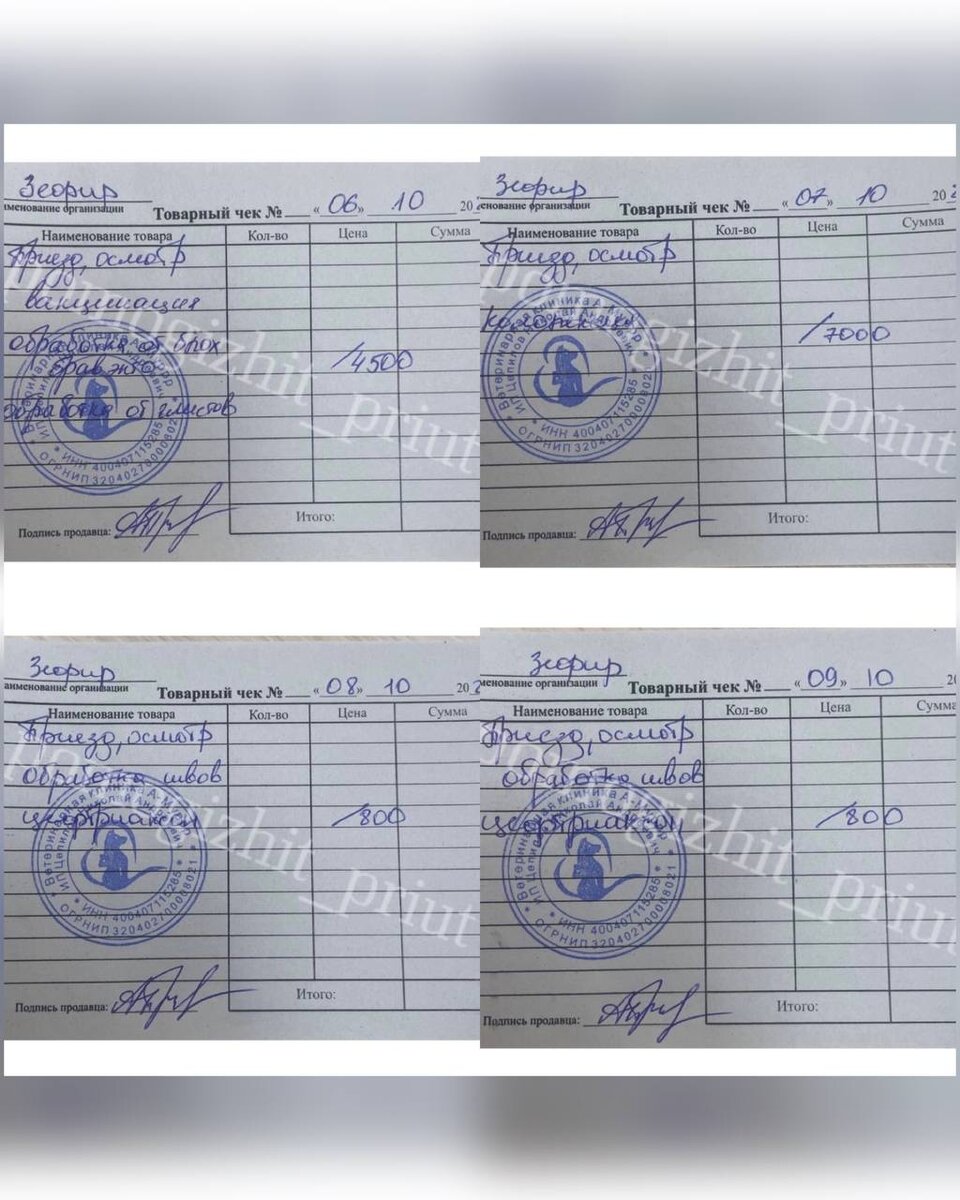 Зефир
именование организации
Товарный чек № « 06 » 10 20
Наименование товара Кол-во Цена Сумма
Приезд, осмотр
вакцинация
обработка от блох
бравекто /4500
обработка от глистов
Ветеринарная клиника
ИНН 400407115285
ОГРНИП 320402700008021
Итого:
Подпись продавца:
Зефир
именование организации
Товарный чек № « 07 » 10 20
Наименование товара Кол-во Цена Сумма
Приезд, осмотр
/7000
Ветеринарная клиника
ИНН 400407115285
ОГРНИП 320402700008021
Итого:
Подпись продавца:
Зефир
именование организации
Товарный чек № « 08 » 10 20
Наименование товара Кол-во Цена Сумма
Приезд, осмотр
обработка швов
цефтриаксон /800
Ветеринарная клиника
ИНН 400407115285
ОГРНИП 320402700008021
Итого:
Подпись продавца:
Зефир
именование организации
Товарный чек № « 09 » 10 20
Наименование товара Кол-во Цена Сумма
Приезд, осмотр
обработка швов
цефтриаксон /800
Ветеринарная клиника
ИНН 400407115285
ОГРНИП 320402700008021
Итого:
Подпись продавца:
pomogizhit_priut